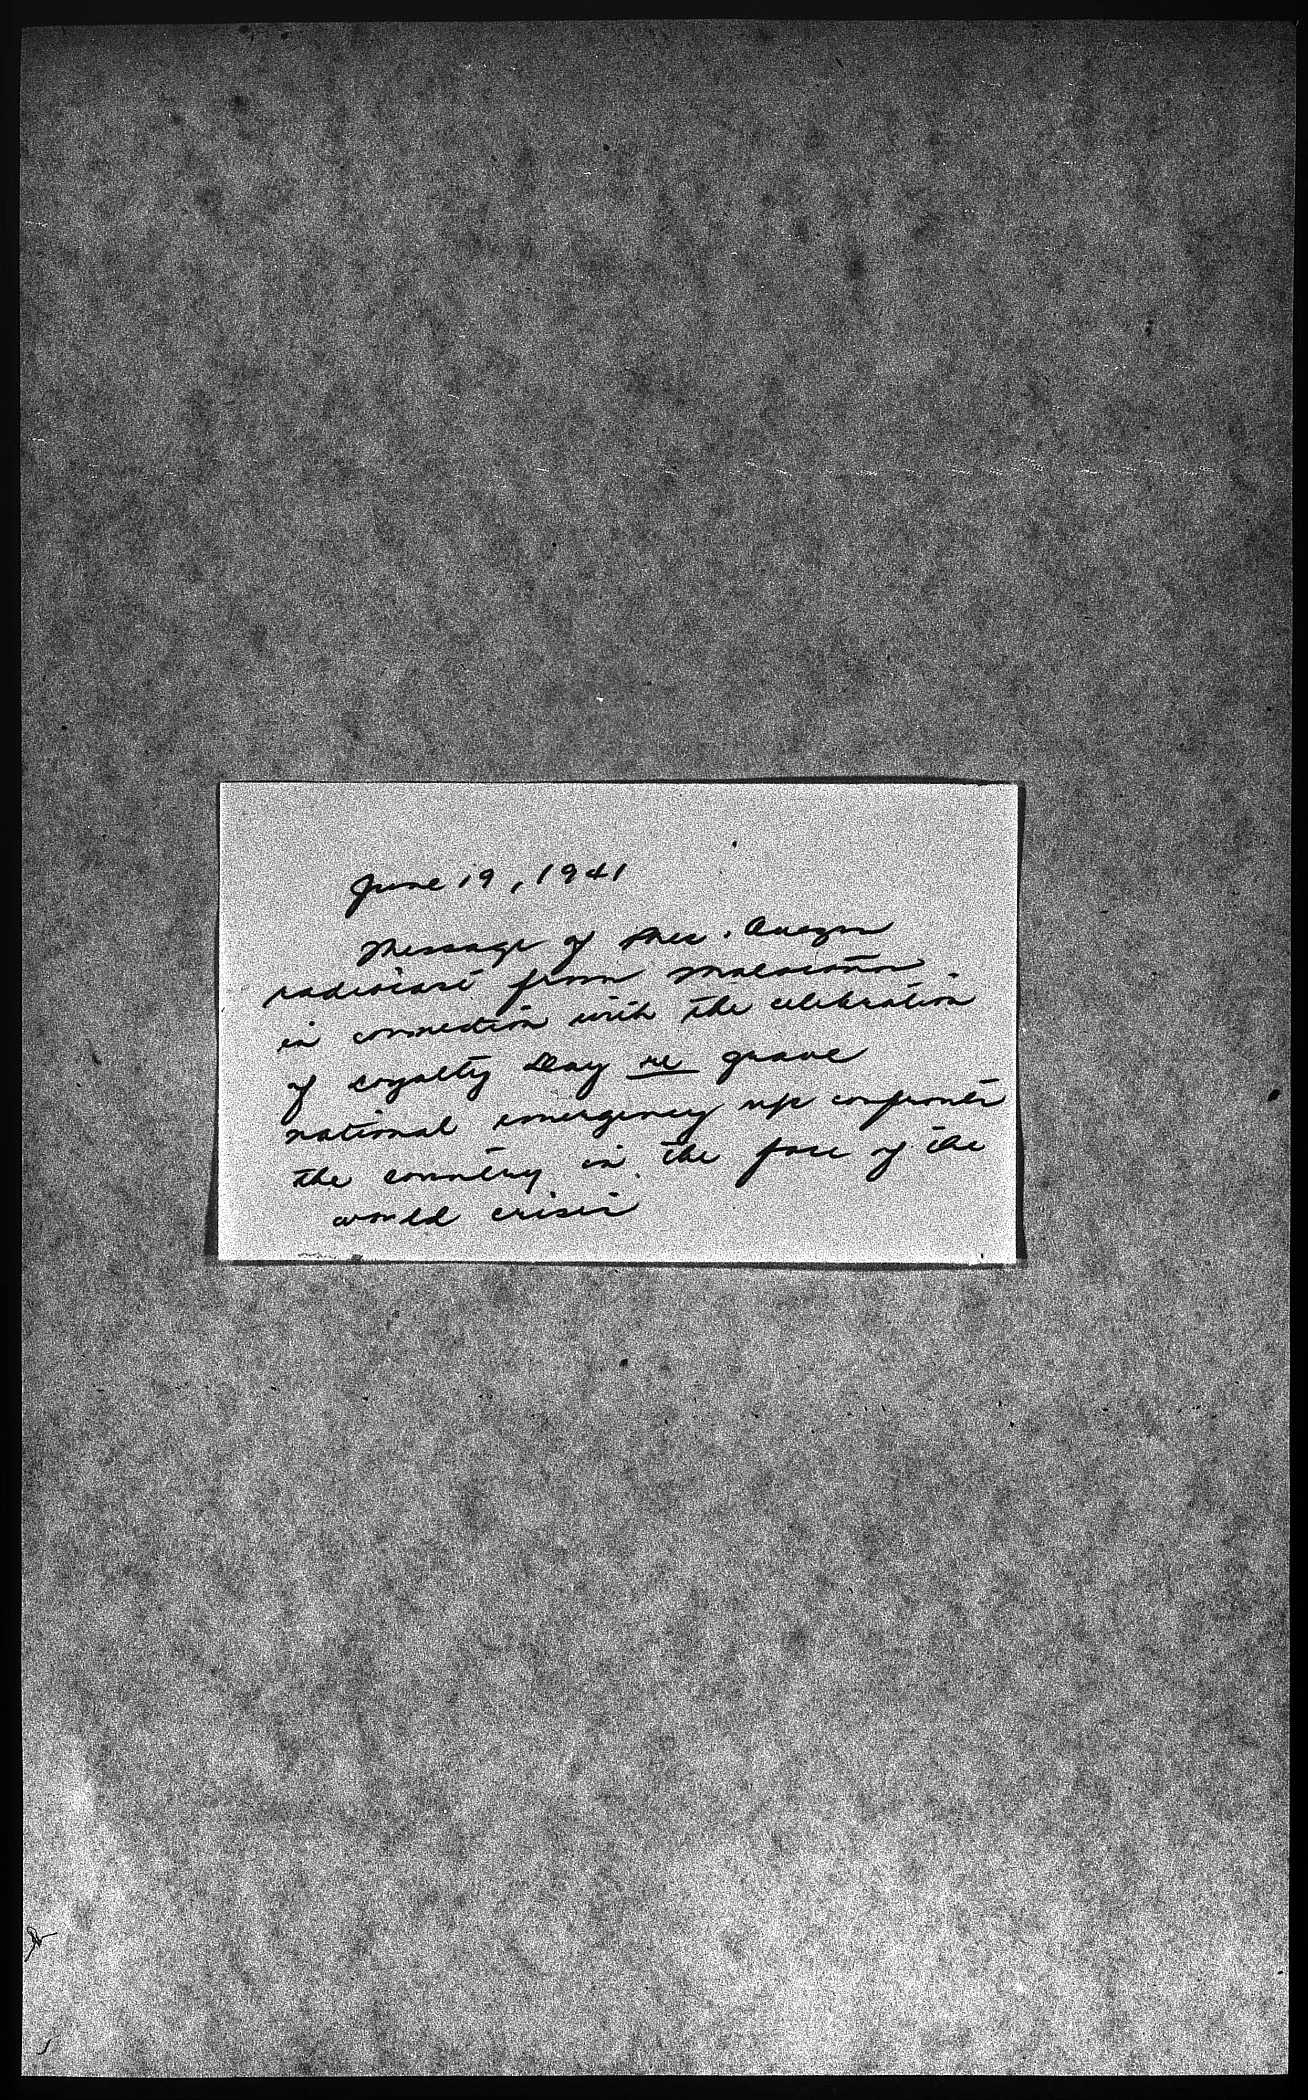 June 19, 1941
Message of Pres. Quezon
radiocast from Malacañan
in connection with the celebration
of Loyalty Day re grave
national emergency w/c confronts
the country in the face of the
world crisis